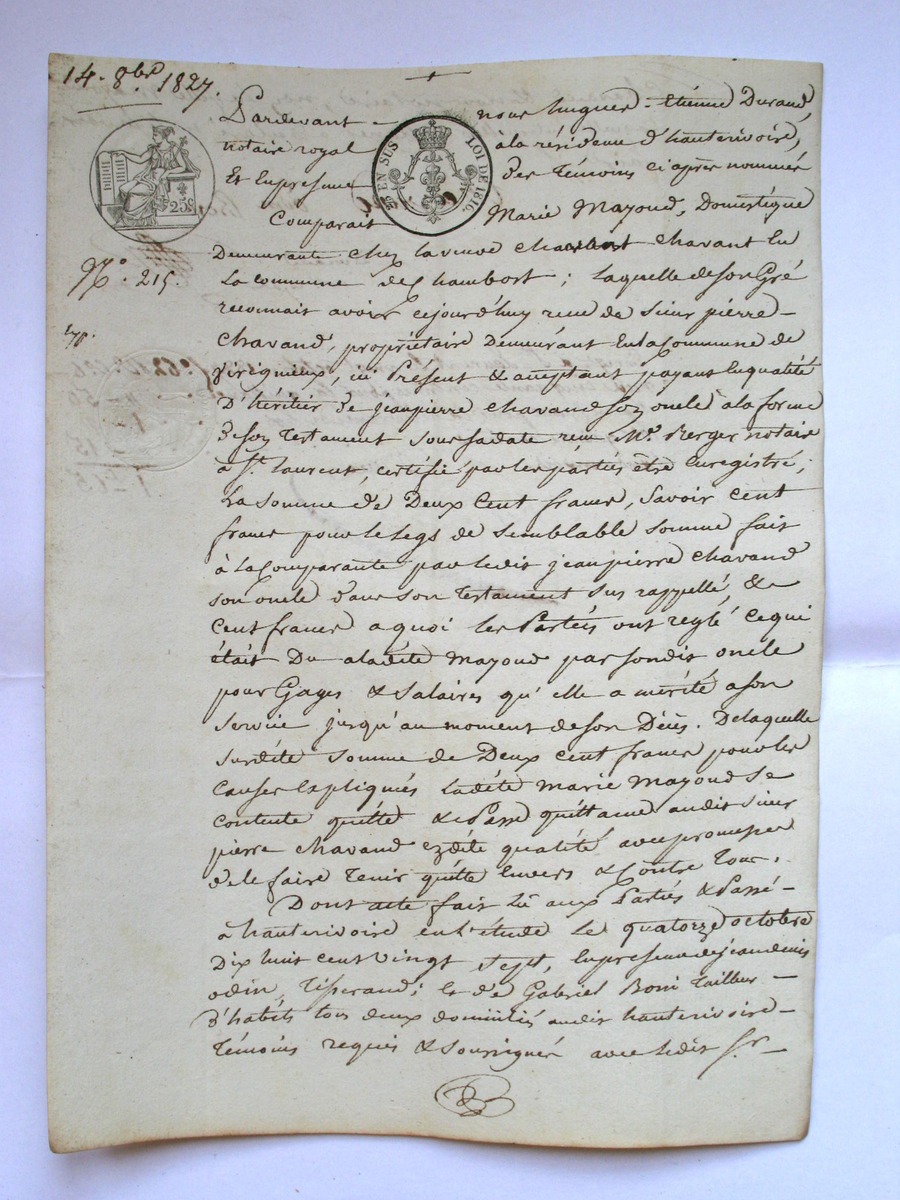 14. 8bre 1827.
Pardevant nous hugues-Etienne Durand,
notaire royal à la résidence d'hauterivoire,
Et En presence des Témoins ci après nommés
EN SUS LOI DE 1816.
25c
Comparait Marie Mayoud, Domestique
N° 215.
Demeurante chez la veuve chavant En
La Commune de chambost; laquelle de son Gré
reconnait avoir cejourd'huy recu de sieur pierre
chavand, propriétaire Demeurant En la Commune de
Virigneux, ici Présent & acceptant payant En qualité
D'héritier de jeanpierre chavand son oncle à la forme
de son Testament sous sa date recu Me. Berger notaire
à St. Laurent, certifié par les parties être Enregistré;
La somme de Deux Cent francs, Savoir cent
francs pour le legs de semblable somme fait
à la Comparante par ledit jeanpierre chavand
son oncle dans son Testament sus rappellé, &
Cent francs a quoi les Parties ont reglé ce qui
était Du a ladite mayoud par sondit oncle
pour Gages & Salaires qu'elle a mérité a son
service jusqu'au moment de son Décès. De laquelle
susdite somme de Deux cent francs pour les
Causes Expliquées ladite marie mayoud se
contente quitte & Passe quittance audit sieur
pierre chavand esdite qualité avec promesse
de le faire Tenir quitte Envers & Contre Tous.
Dont acte fait lû aux Parties & Passé
à hauterivoire en l'étude le quatorze octobre
Dix huit cent vingt sept, En presence de jean denis
odin, Tisserand; Et de Gabriel Boni Tailleur
D'habits tous deux domiciliés audit hauterivoire
Témoins requis & soussignés avec ledit sr